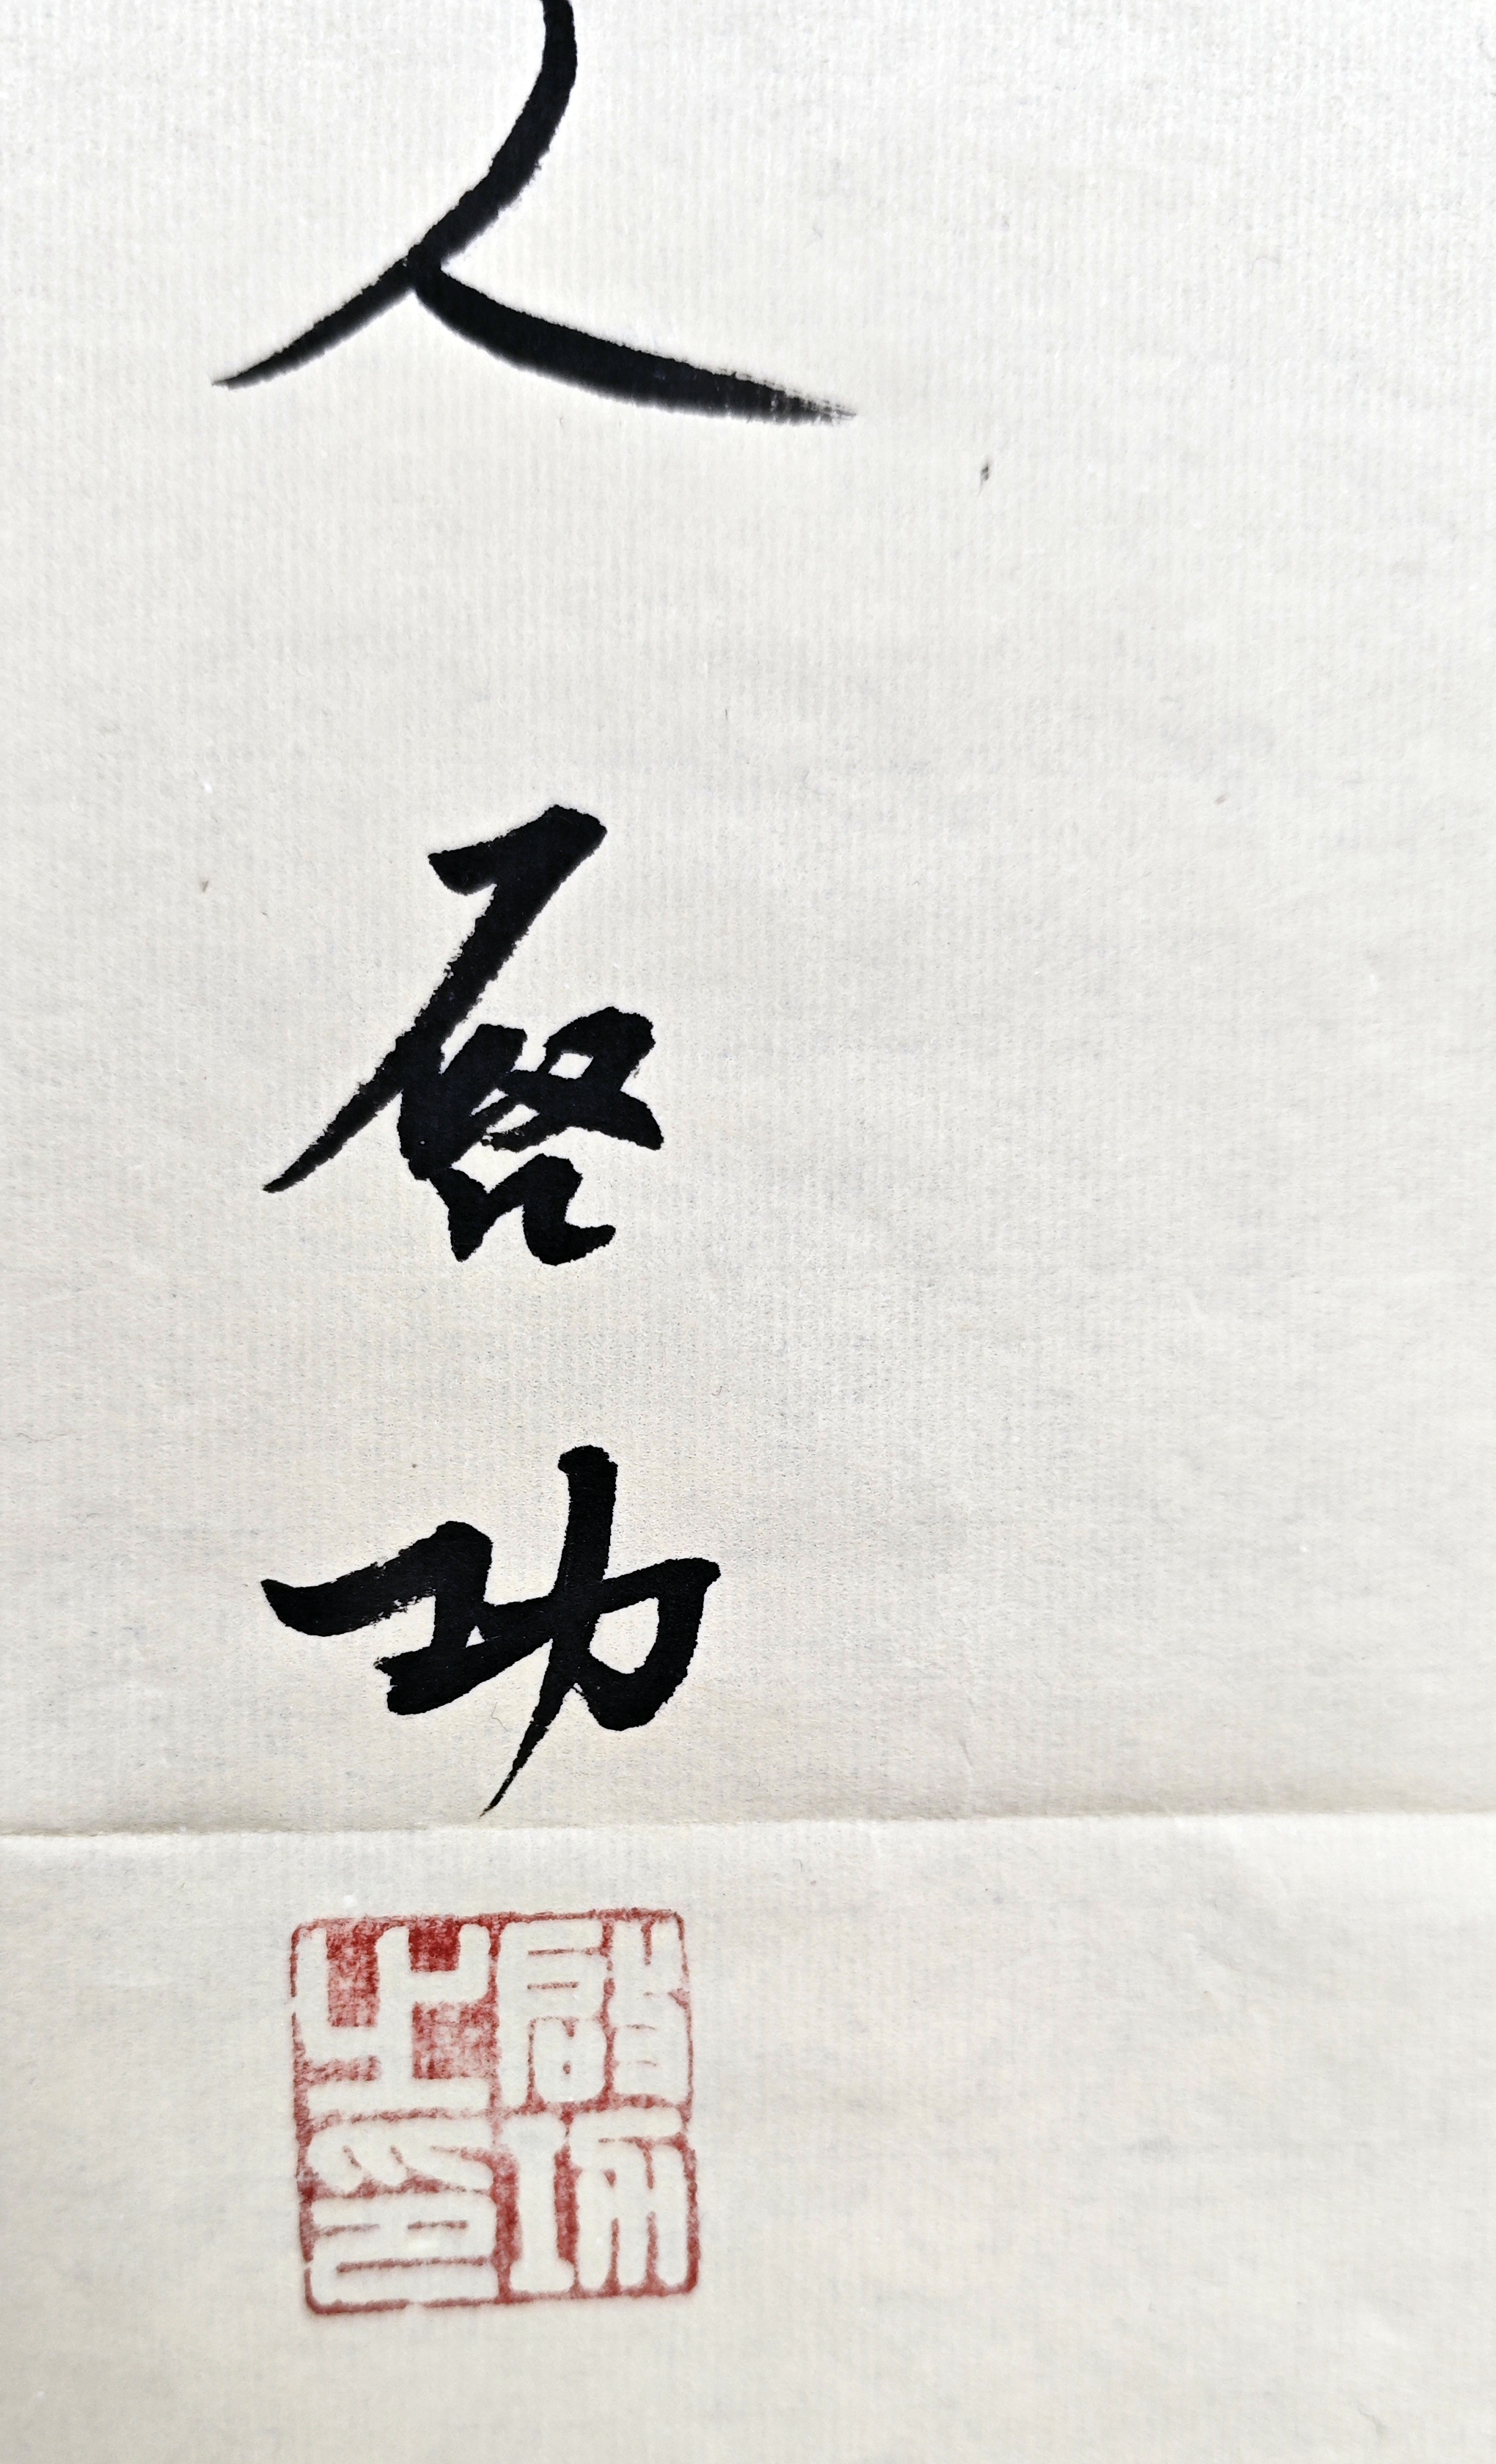 人
启功
啟功之印